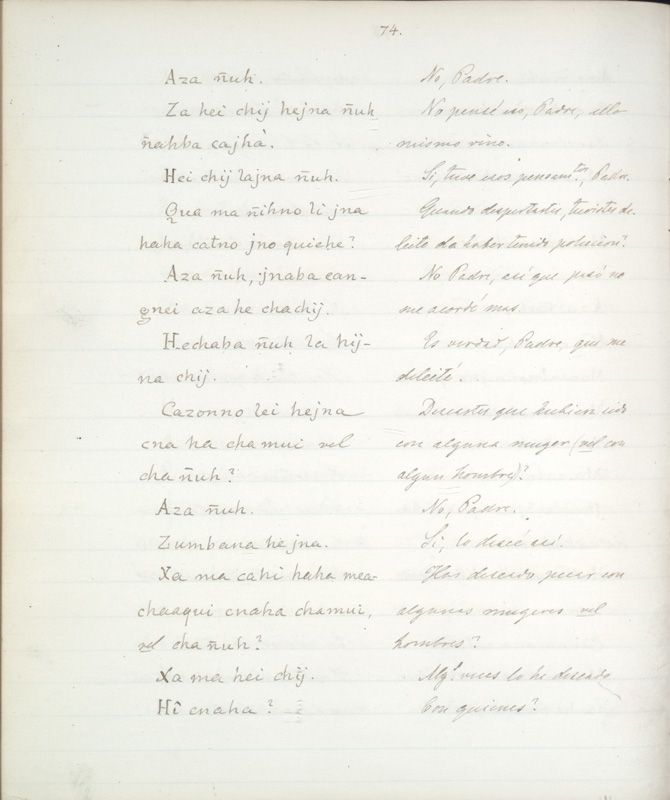 74.
Aza ñuh. No, Padre.
Za hei chij hejna ñuh No pensé eso, Padre, ello
ñahba cajhà. mismo vino.
Hei chij lajna ñuh. Si, tuve esos pensam.tos, Padre.
Qua ma ñihno li jna Quando despertastes, tuvistes de-
haha catno jno quiche? leite da haber tenido polucion?
Aza ñuh, jnaba can- No Padre, asi que pasó no
gnei aza he chachij. me acordé mas.
Hechaba ñuh la hij- Es verdad, Padre, que me
na chij. deleité.
Cazonno lei hejna Deseastes que hubiera sido
cna ha chamui vel con alguna muger (vel con
cha ñuh? algun hombre)?
Aza ñuh. No, Padre.
Zumbana hejna. Si, lo deseé asi.
Xa ma cahi haha mea- Has deseado pecar con
chaaqui cnaha chamui, algunas mugeres vel
vel cha ñuh? hombres?
Xa ma hei chij. Alg.s veces lo he deseado
Hî cnaha? Con quienes?